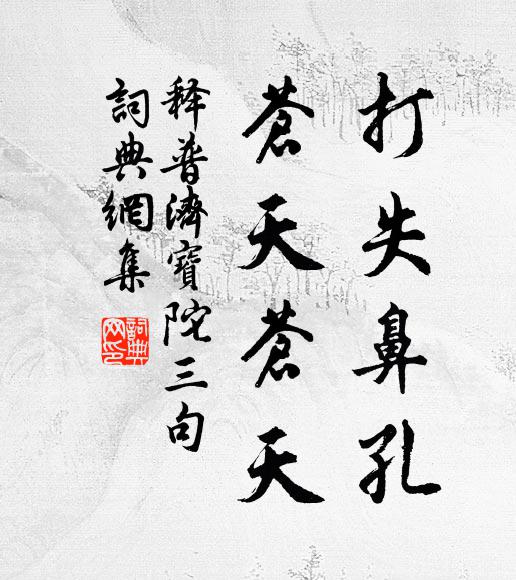 打失鼻孔
蒼天蒼天
释普濟寶陀三句
詞典網集
詞典网印